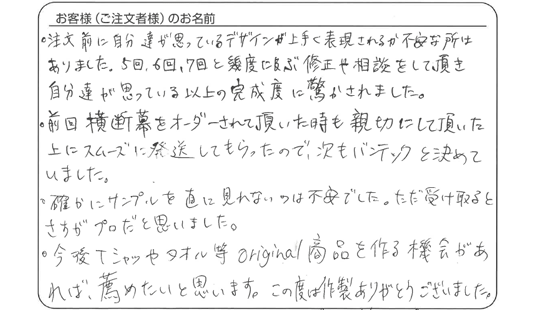 お客様（ご注文者様）のお名前
・注文前に自分達が思っているデザインが上手く表現されるか不安な所は
ありました。5回,6回,7回と幾度に及ぶ修正や相談をして頂き
自分達が思っている以上の完成度に驚かされました。
・前回横断幕をオーダーされて頂いた時も親切にして頂いた
上にスムーズに発送してもらったので、次もバンテックと決めて
いました。
・確かにサンプルを直に見れないのは不安でした。ただ受け取ると
さすがプロだと思いました。
・今後Tシャツやタオル等original商品を作る機会があ
れば、薦めたいと思います。この度は作製ありがとうございました。